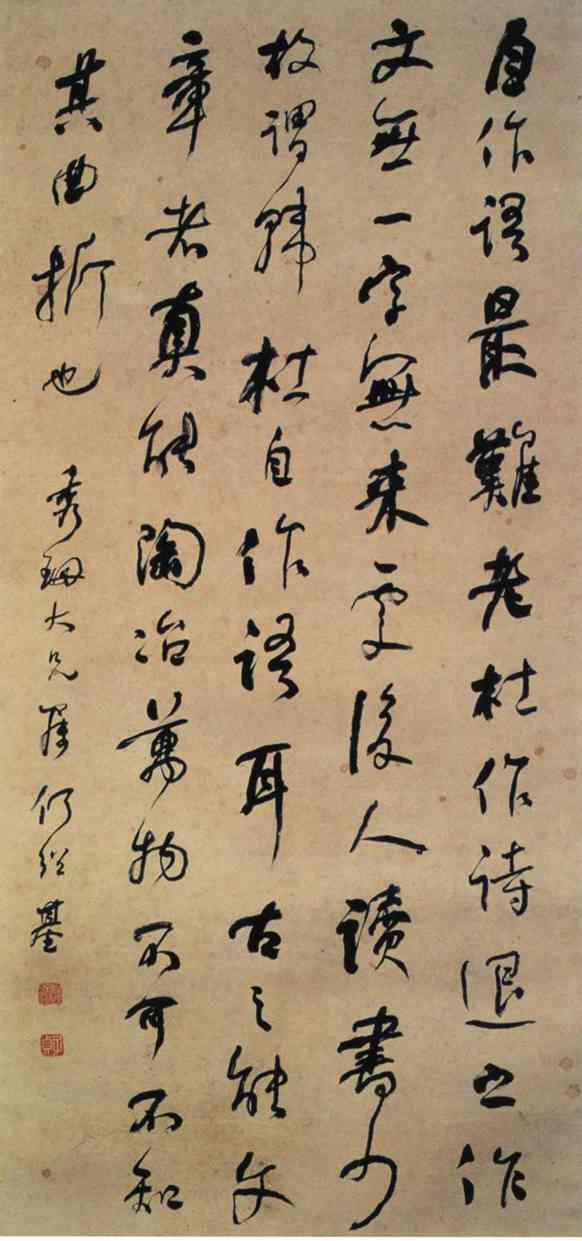 自作語最難老杜作詩退之作
文無一字無来處後人讀書少
故謂韓杜自作語耳古之能文
章者真能陶冶萬物不可不知
其曲折也
秀珊大兄屬何紹基